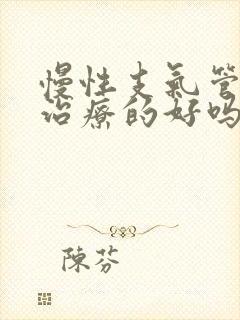 慢性支氣管
治療的好嗎
陳芬